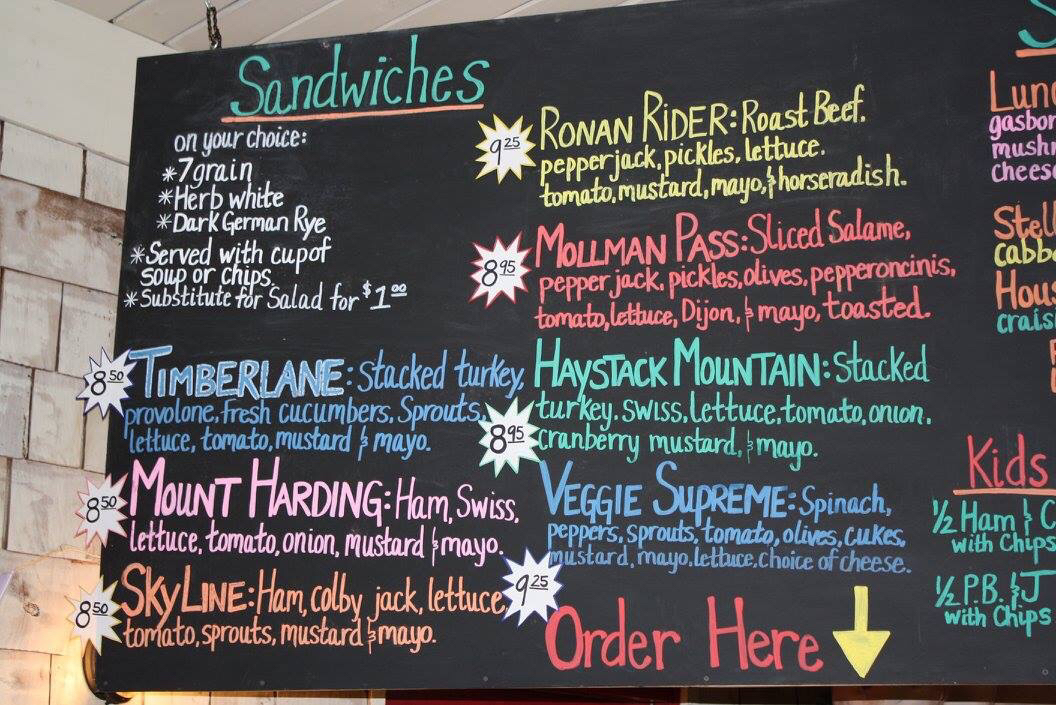 Sandwiches
on your choice:
*7 grain
*Herb white
*Dark German Rye
*Served with cup of
soup or chips
*Substitute for Salad for $1.00
8.50
TIMBERLANE: Stacked turkey,
provolone, Fresh cucumbers, Sprouts,
lettuce, tomato, mustard & mayo.
8.50
MOUNT HARDING: Ham, Swiss,
lettuce, tomato, onion, mustard & mayo.
8.50
SKYLINE: Ham, colby jack, lettuce,
tomato, sprouts, mustard & mayo.
9.25
RONAN RIDER: Roast Beef.
pepperjack, pickles, lettuce.
tomato, mustard, mayo, & horseradish.
8.95
MOLLMAN PASS: Sliced Salame,
pepper jack, pickles, olives, pepperoncinis,
tomato, lettuce, Dijon, & mayo, toasted.
8.95
HAYSTACK MOUNTAIN: Stacked
turkey, swiss, lettuce, tomato, onion,
cranberry mustard, & mayo.
9.25
VEGGIE SUPREME: Spinach,
peppers, sprouts, tomato, olives, cukes,
mustard, mayo, lettuce, choice of cheese.
Order Here
S
Lun
gasbor
mushr
cheese
Stell
cabb
Hous
craisi
Kids
½ Ham & C
with Chips
½ P.B. & J
with Chips